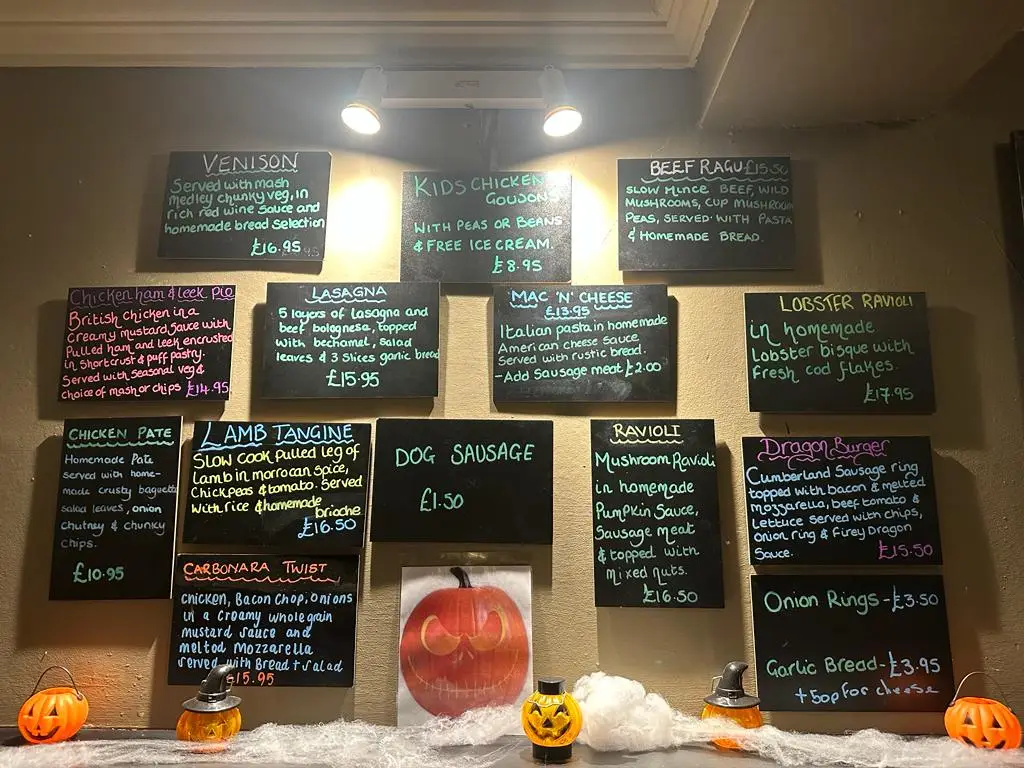 VENISON
Served with mash
medley chunky veg, in
rich red wine sauce and
homemade bread selection
£16.95
KIDS CHICKEN
GOUJON
WITH PEAS OR BEANS
& FREE ICE CREAM.
£8.95
BEEF RAGU £15.50
SLOW MINCE BEEF, WILD
MUSHROOMS, CUP MUSHROOM
PEAS, SERVED WITH PASTA
& HOMEMADE BREAD.
Chicken ham & leek Pie
British chicken in a
Creamy mustard sauce with
Pulled ham and leek encrusted
in shortcrust & puff pastry.
Served with seasonal veg &
choice of mash or chips £14.95
LASAGNA
5 layers of lasagna and
beef bolognesa, topped
with bechamel, salad
leaves & 3 slices garlic bread
£15.95
MAC 'N' CHEESE
£13.95
Italian pasta in homemade
American cheese sauce
Served with rustic bread.
-Add sausage meat £2.00
LOBSTER RAVIOLI
in homemade
Lobster bisque with
fresh cod flakes.
£17.95
CHICKEN PATE
Homemade Pate
served with home-
made crusty baguette
salad leaves, onion
chutney & chunky
chips.
£10.95
LAMB TANGINE
SLOW COOK pulled leg of
Lamb in morracan spice,
Chickpeas & tomato. Served
with rice & homemade
brioche
£16.50
DOG SAUSAGE
£1.50
RAVIOLI
Mushroom Ravioli
in homemade
Pumpkin Sauce,
Sausage meat
& topped with
mixed nuts.
£16.50
Dragon Burger
Cumberland Sausage ring
topped with bacon & melted
mozzarella, beef tomato &
Lettuce served with chips,
Onion ring & Firey Dragon
Sauce.
£15.50
CARBONARA TWIST
Chicken, Bacon Chop, onions
in a creamy wholegrain
mustard sauce and
melted Mozzarella
served with Bread + salad
£15.95
Onion Rings - £3.50
Garlic Bread - £3.95
+ 50p for cheese